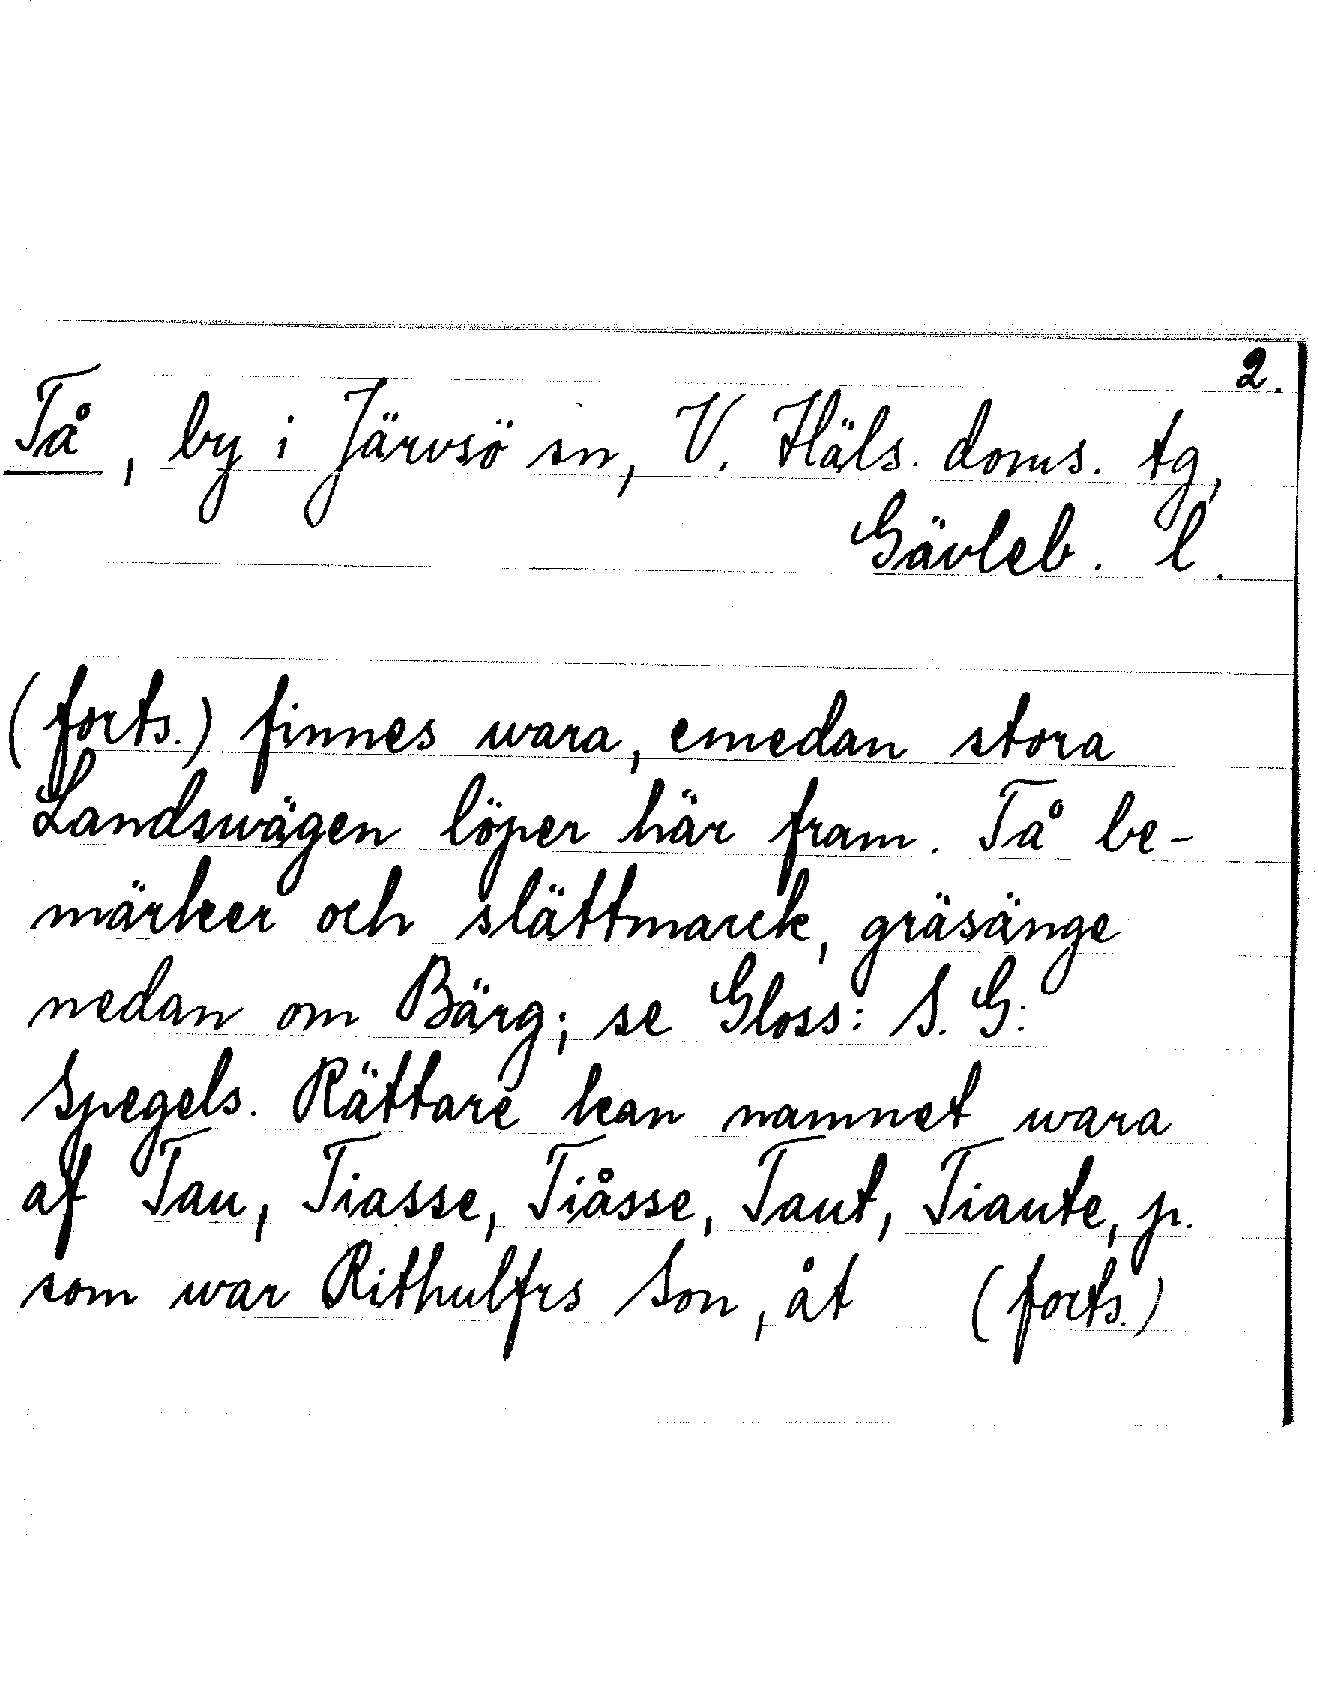 2.
Tå, by i Järvsö sn, V. Häls. doms. tg,
Gävleb. l.
(forts.) finnes wara, emedan stora
Landswägen löper här fram. Tå be-
märker och slättmarck, gräsänge
nedan om Bärg; se Gloss: S. G:
Spegels. Rättare kan namnet wara
af Tau, Tiasse, Tiåsse, Taut, Tiaute, p.
som war Rithulfrs Son, åt (forts.)